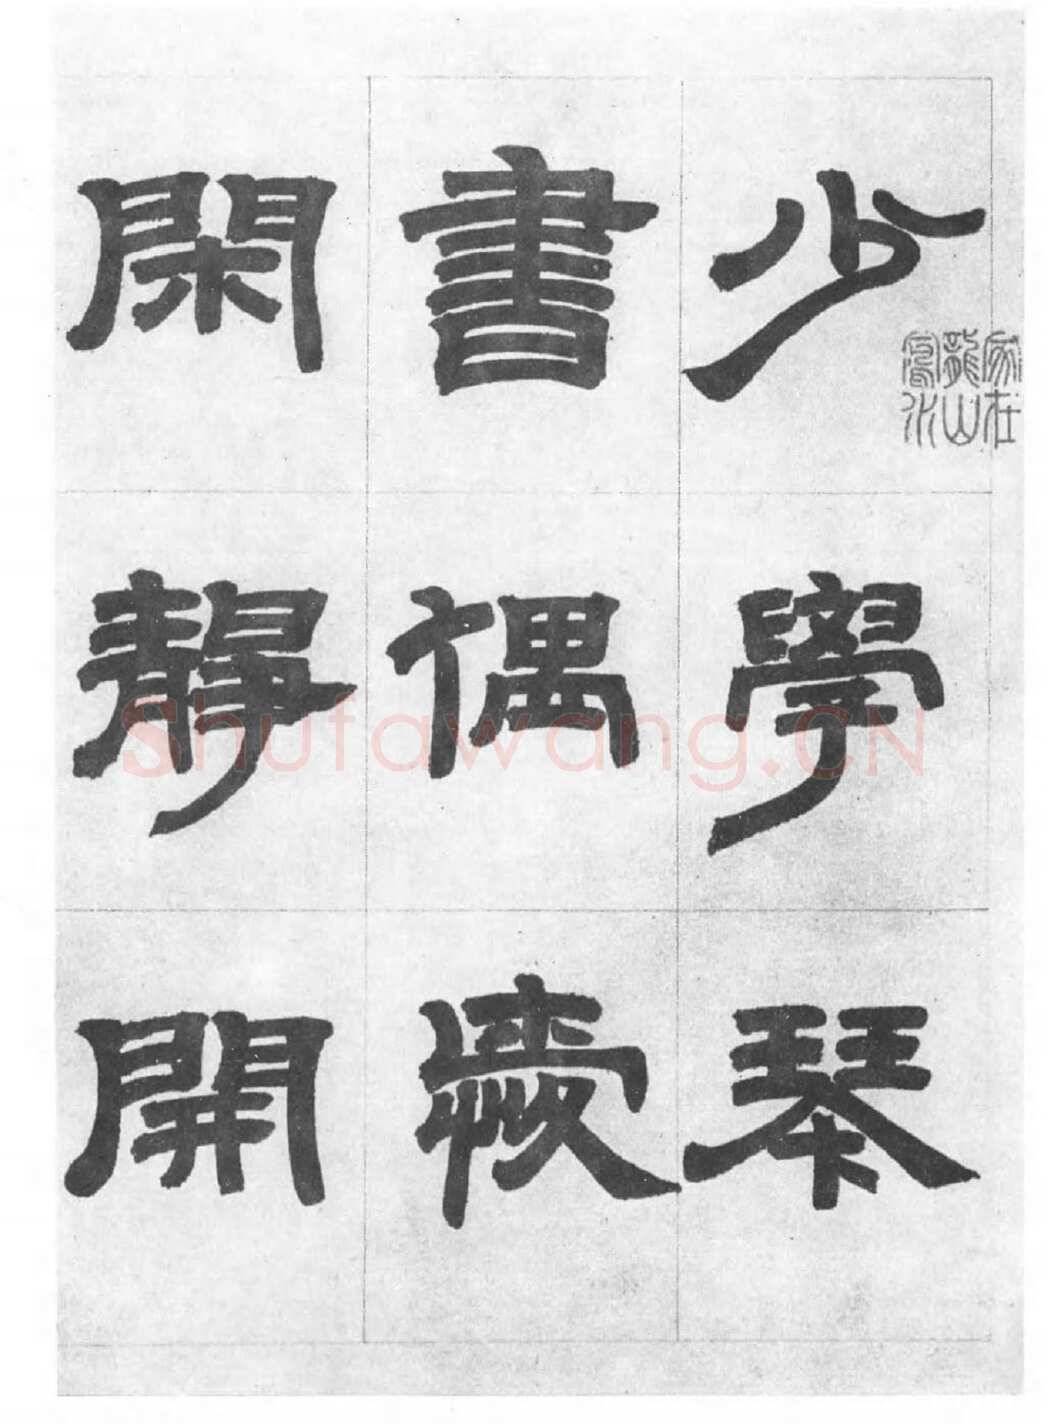 少學琴
書偶愛
閑靜開
家在
龍山
水
Shufawang.CN